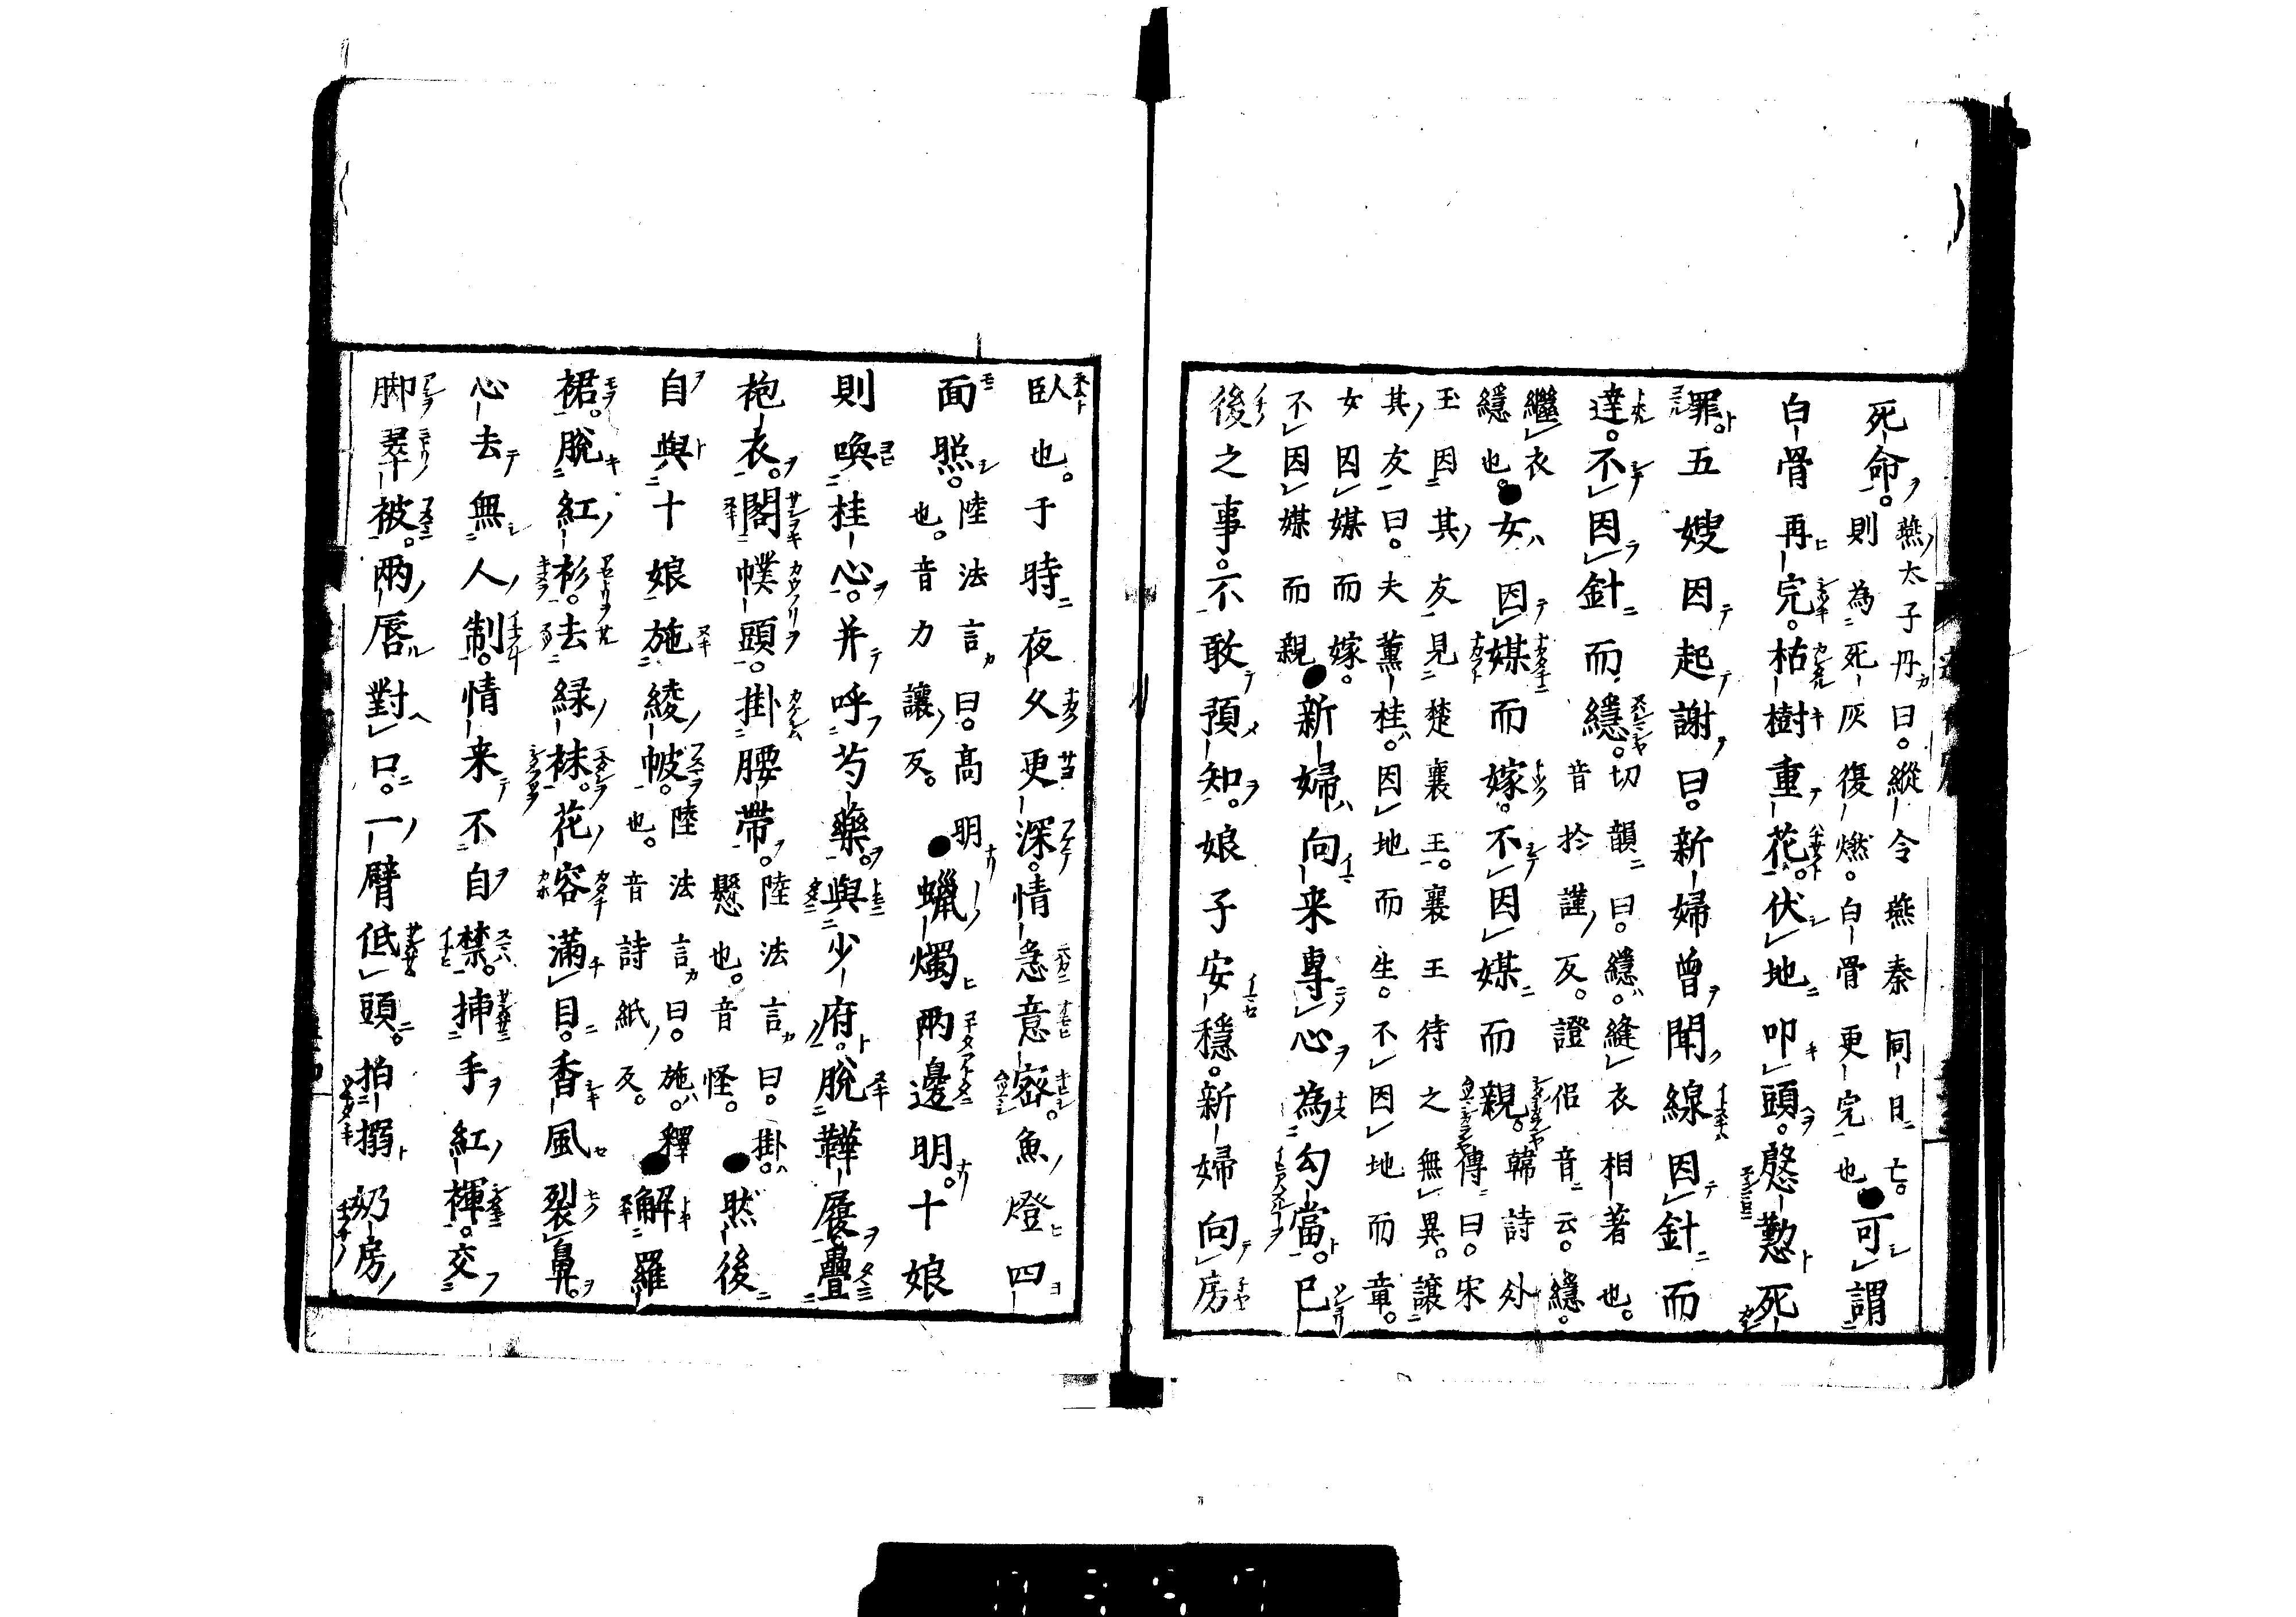 死命。燕太子丹曰。縱令燕秦同日亡。則為死灰復燃。白骨更完也●可謂
白骨再完。枯樹重花。伏地叩頭。慇懃死
罪。五嫂因起謝曰。新婦曾聞線因針而
達。不因針而縕。切韻曰。縕縫衣相著也。音於謹反。證侶音云。縕
繼衣縕也。●女因媒而嫁。不因媒而親。韓詩外傳曰。宋
玉因其友見楚襄王。襄王待之無異。讓
其友曰。夫薫桂因地而生。不因地而辛。
女因媒而嫁。
不因媒而親●新婦向来專心為勾當。已
後之事。不敢預知。娘子安穩。新婦向房
臥也。于時夜久更深。情急意密。魚燈四
面照。陸法言曰。高明也。音力讓反。●蠟燭兩邊明。十娘
則喚桂心。并呼芍藥。與少府。脫鞾履疊
袍衣。閣幞頭。掛腰帶。陸法言曰。掛懸也。音怪。●然後
自與十娘施綾帔。陸法言曰。施釋也。音詩紙反。●解羅
裙。脫紅衫。去緑袜。花容滿目。香風裂鼻。
心去無人制。情来不自禁。挿手紅褌。交
脚翠被。兩唇對口。一臂低頭。拍搦奶房